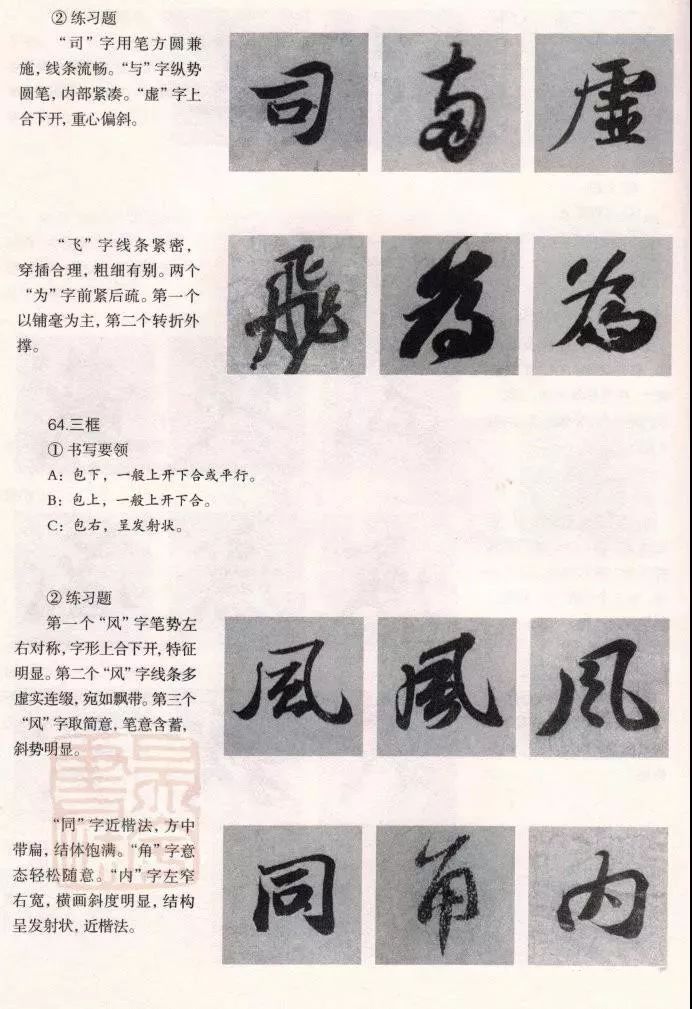 ② 练习题
“司”字用笔方圆兼
施,线条流畅。“与”字纵势
圆笔,内部紧凑。“虚”字上
合下开,重心偏斜。
司
虚
“飞”字线条紧密,
穿插合理,粗细有别。两个
“为”字前紧后疏。第一个
以铺毫为主,第二个转折外
撑。
飛 為 為
64.三框
① 书写要领
A:包下,一般上开下合或平行。
B:包上,一般上开下合。
C:包右,呈发射状。
② 练习题
第一个“风”字笔势左
右对称,字形上合下开,特征
明显。第二个“风”字线条多
虚实连缀,宛如飘带。第三个
“风”字取简意,笔意含蓄,
斜势明显。
風 風 风
“同”字近楷法,方中
带扁,结体饱满。“角”字意
态轻松随意。“内”字左窄
右宽,横画斜度明显,结构
呈发射状,近楷法。
同 角 内